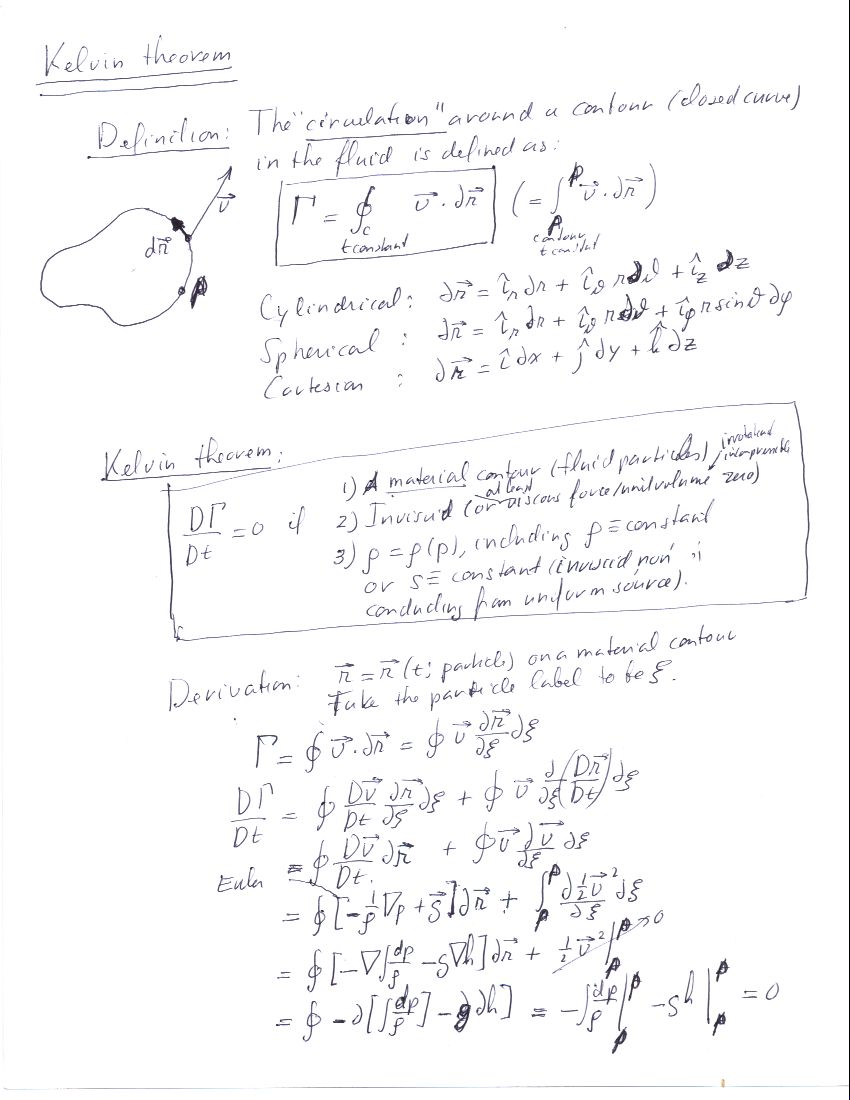 Kelvin theorem
Definition: The "circulation" around a contour (closed curve)
in the fluid is defined as:
Γ = ∮_C v⃗ · dr⃗ (= ∫_P^P v⃗ · dr⃗)
t constant contour t constant
v⃗
dr⃗
P
Cylindrical: dr⃗ = î_r dr + î_θ r dθ + î_z dz
Spherical : dr⃗ = î_r dr + î_θ r dθ + î_φ r sinθ dφ
Cartesian : dr⃗ = î dx + ĵ dy + k̂ dz
Kelvin theorem:
DΓ/Dt = 0 if
1) A material contour (fluid particles)
irrotational incompressible
2) Inviscid (or at least viscous force/unit volume zero)
3) ρ = ρ(p), including ρ ≡ constant
or s ≡ constant (inviscid non
conducting from uniform source).
Derivation: r⃗ = r⃗(t; particle) on a material contour
Take the particle label to be ξ.
Γ = ∮ v⃗ · dr⃗ = ∮ v⃗ ∂r⃗/∂ξ dξ
DΓ/Dt = ∮ Dv⃗/Dt ∂r⃗/∂ξ dξ + ∮ v⃗ ∂/∂ξ (Dr⃗/Dt) dξ
= ∮ Dv⃗/Dt · dr⃗ + ∮ v⃗ ∂v⃗/∂ξ dξ
Euler
= ∮ [-1/ρ ∇p + g⃗] dr⃗ + ∫_P^P ∂½v⃗²/∂ξ dξ
= ∮ [-∇∫dp/ρ - g∇h] dr⃗ + ½v⃗² |_P^P → 0
= ∮ -d[∫dp/ρ] - g dh] = -∫dp/ρ |_P^P - gh |_P^P = 0